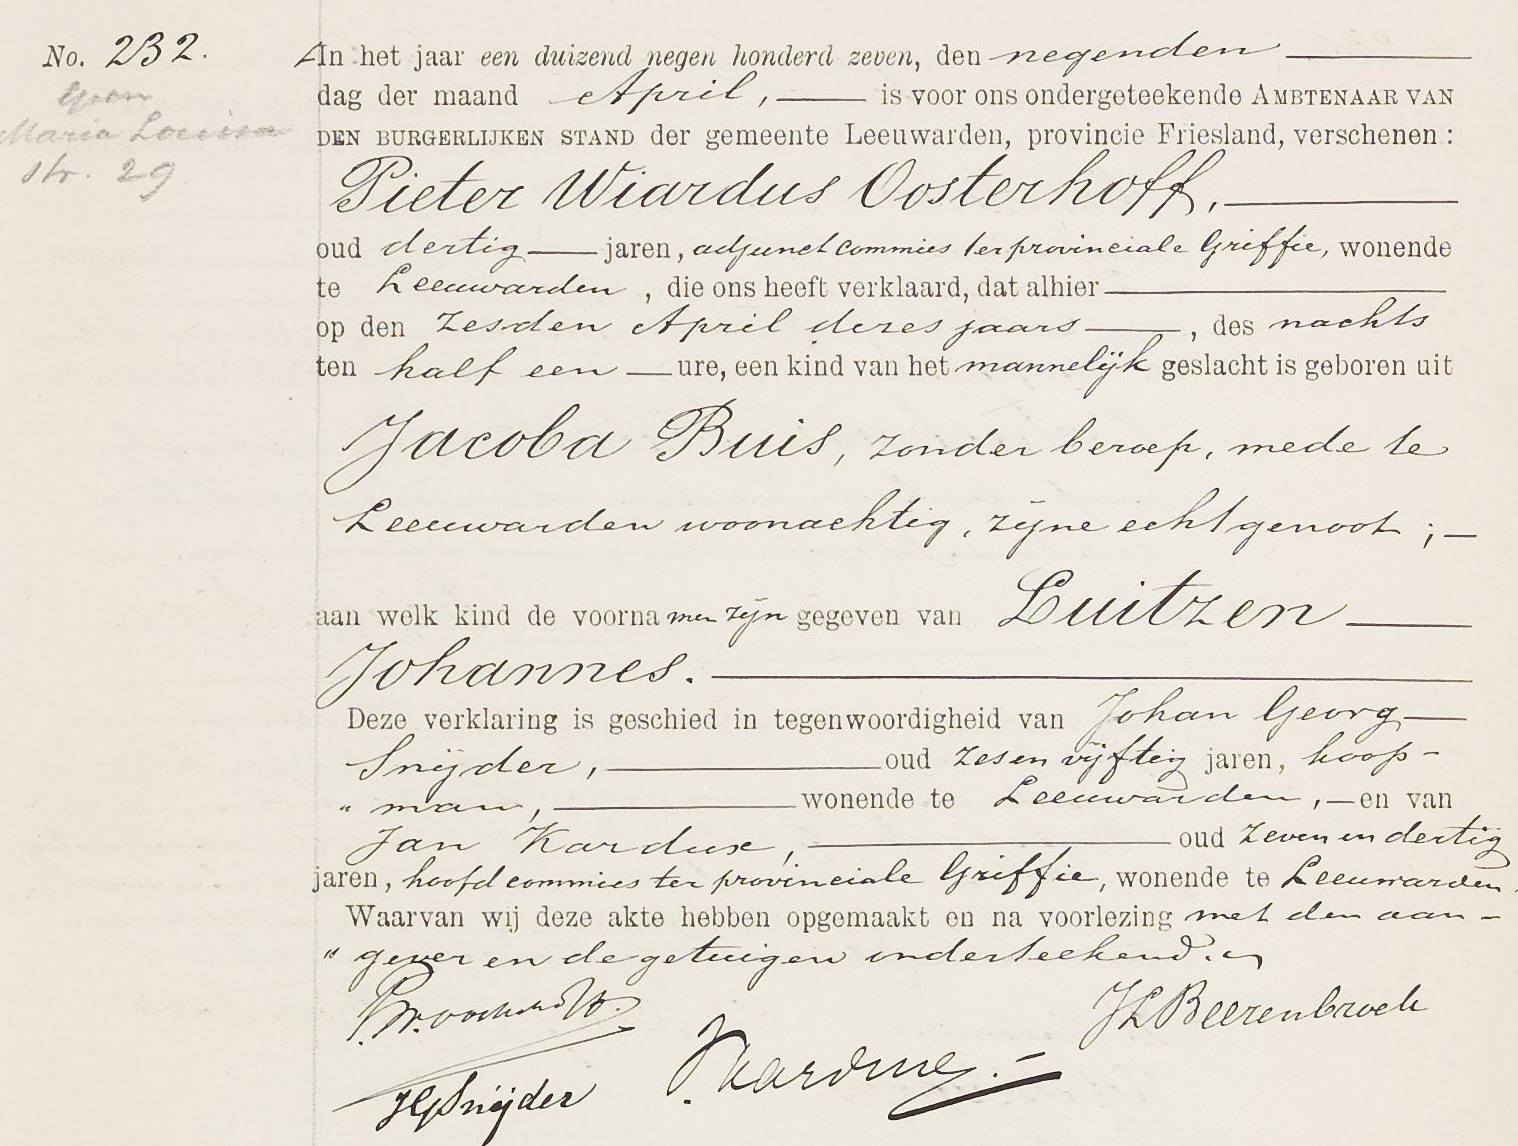 No. 232.
Maria Louisa
str. 29
In het jaar een duizend negen honderd zeven, den negenden
dag der maand April, is voor ons ondergeteekende AMBTENAAR VAN
DEN BURGERLIJKEN STAND der gemeente Leeuwarden, provincie Friesland, verschenen:
Pieter Wiardus Oosterhoff,
oud dertig jaren, adjunct commies ter provinciale Griffie, wonende
te Leeuwarden, die ons heeft verklaard, dat alhier
op den zesden April dezes jaars, des nachts
ten half een ure, een kind van het mannelijk geslacht is geboren uit
Jacoba Buis, zonder beroep, mede te
Leeuwarden woonachtig, zijne echtgenoot;
aan welk kind de voornamen zijn gegeven van Luitzen
Johannes.
Deze verklaring is geschied in tegenwoordigheid van Johan Georg
Snijder, oud zesenvijftig jaren, koop-
"man, wonende te Leeuwarden, en van
Jan Kardux, oud zevenendertig
jaren, hoofdcommies ter provinciale Griffie, wonende te Leeuwarden.
Waarvan wij deze akte hebben opgemaakt en na voorlezing met den aan-
"gever en de getuigen onderteekend.
JL Beerenbroek
JKardux.
JGSnijder